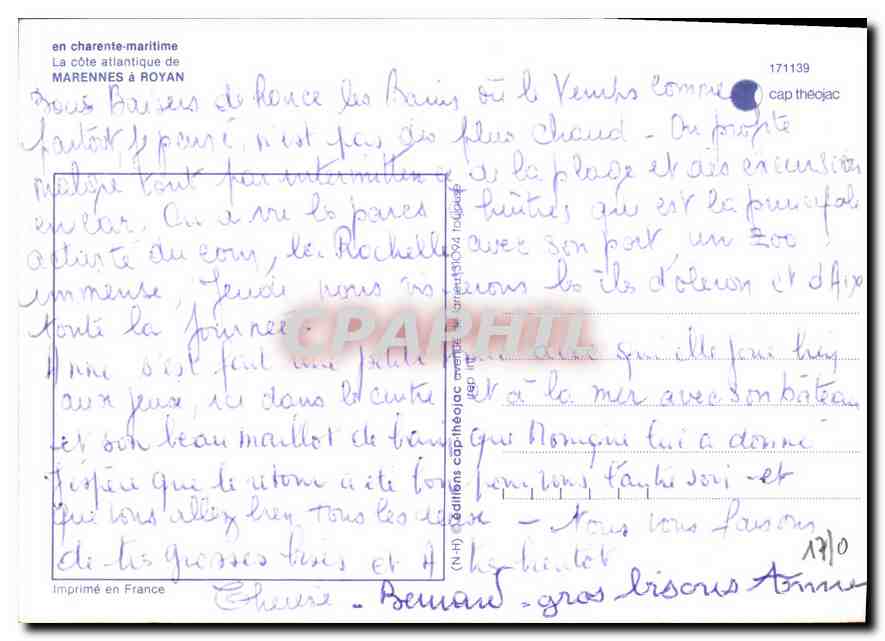 en charente-maritime
La côte atlantique de
MARENNES à ROYAN
171139
cap théojac
Bons Baisers de Ronce les Bains où le Temps comme
partout, je pense, n'est pas des plus chaud - On profite
malgré tout par intermittence de la plage et des excursions
en car. On a vu les parcs à huîtres qui est la principale
activité du coin, la Rochelle avec son port, un Zoo
immense, Jeudi nous visiterons les îles d'oleron et d'Aix
toute la journée.
CPAPHIL
Anne s'est fait une petite avec qui elle joue bien
aux jeux, ici dans le centre et à la mer avec son bâteau
et son beau maillot de bain que Monique lui a donné
J'espère que le retour a été bon pour vous l'autre soir et
que vous allez bien Tous les deux - Nous vous faisons
de très grosses bises et A très bientôt
17/0
Thérèse - Bernard - gros bisous Anne
(N-H) © éditions cap-théojac avenue larrieu 31094 toulouse
rep int
Imprimé en France